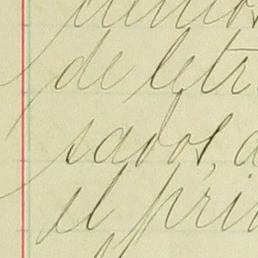 de letr
sados, a
el pri